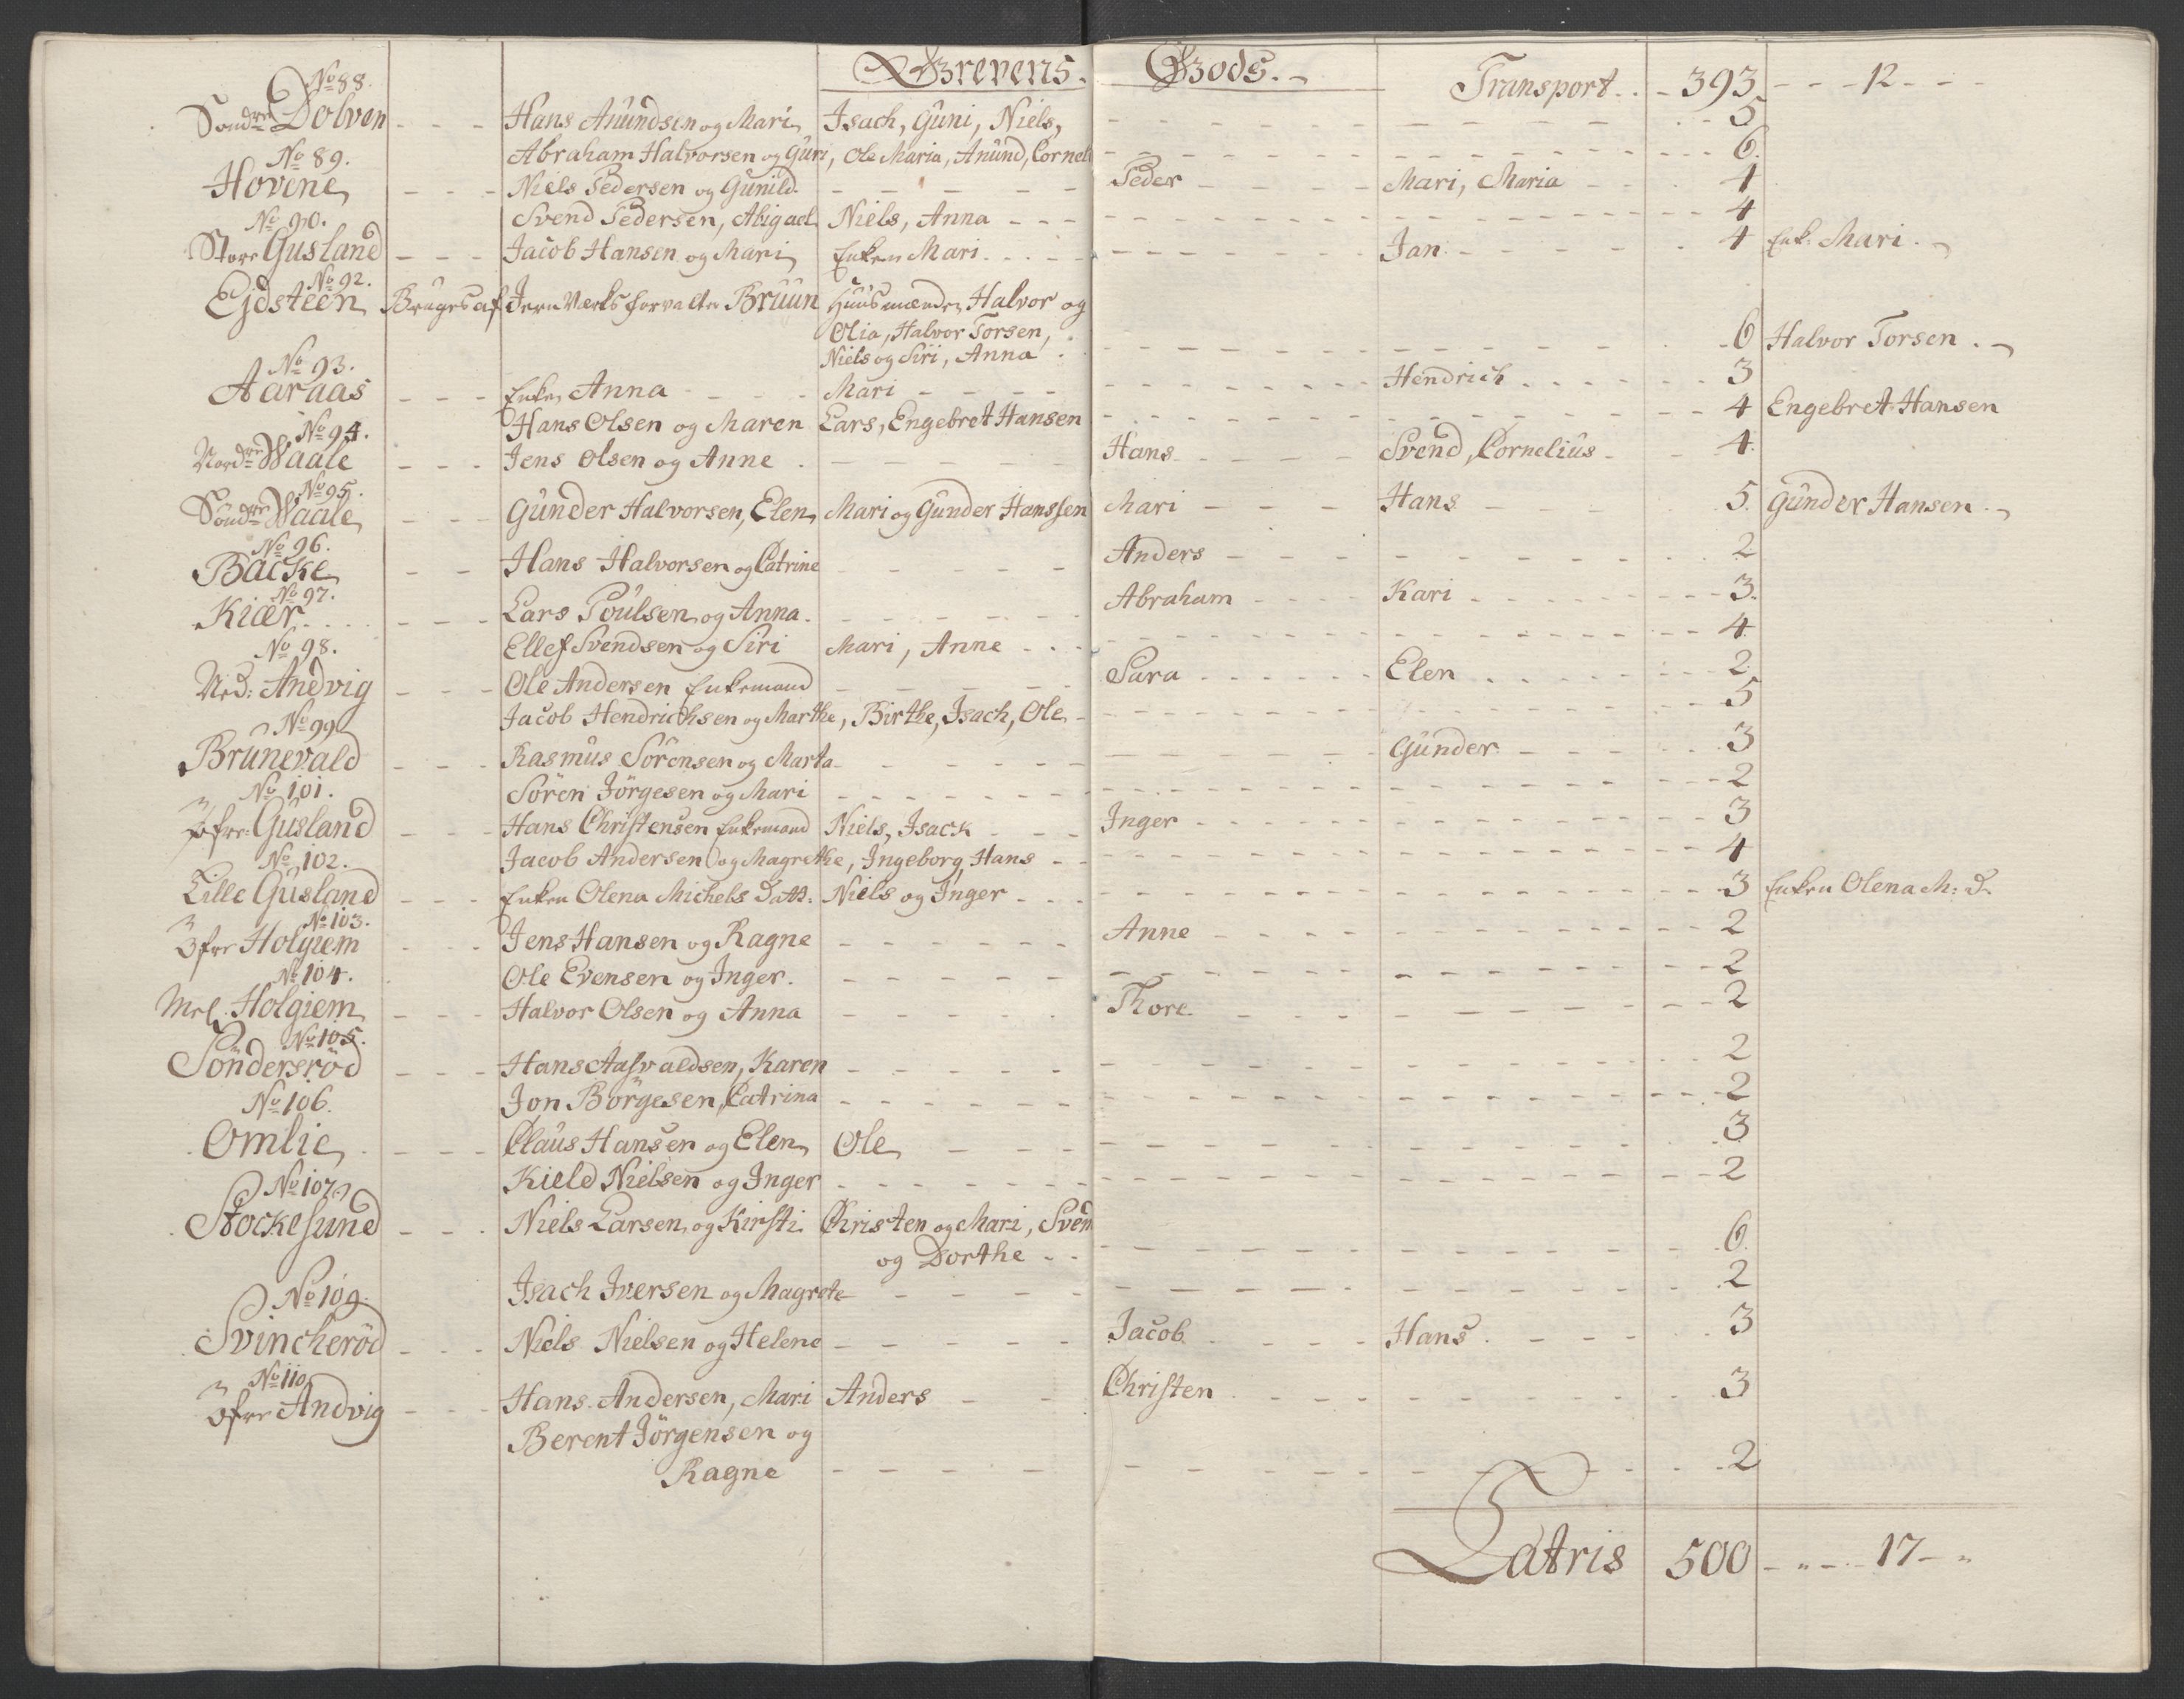 Grevens Gods.
Transport 393 12
No 88.
Sondre Dolven Hans Anundsen og Mari Isach, Guni, Niels, 5
Abraham Halvorsen og Guri, Ole Maria, Anund, Cornel 6.
No 89.
Hovene Niels Pedersen og Gunild. Peder Mari, Maria 4
Svend Pedersen, Abigael Niels, Anna 4
No 90.
Store Gusland Jacob Hansen og Mari Enken Mari. Jan. 4 Enk. Mari.
No 92.
Ejdsteen Bruges af Jern Værks forvalter Bruun Huusmænden Halvor og
Olia, Halvor Torsen,
Niels og Siri, Anna 6 Halvor Torsen.
No 93.
Aaraas Enken Anna Mari Hendrich 3
Hans Olsen og Maren Lars, Engebret Hansen 4 Engebret Hansen
No 94.
Nordre Waale Jens Olsen og Anne Hans Svend, Cornelius 4.
No 95.
Söndre Waale Gunder Halvorsen, Elen Mari og Gunder Hanssen Mari Hans 5. Gunder Hansen
No 96.
Backe Hans Halvorsen og Catrine Anders 2
No 97.
Kiær Lars Poulsen og Anna. Abraham Kari 3.
Ellef Svendsen og Siri Mari, Anne 4.
No 98.
Ned: Andvig Ole Andersen Enkemand Sara Elen 2
Jacob Hendrichsen og Marthe, Birthe, Isach, Ole 5
No 99
Brunevald Rasmus Sörensen og Marta Gunder 3
Sören Jörgesen og Mari 2
No 101.
Öfre: Gusland Hans Christensen Enkemand Niels, Isack Inger 3
Jacob Andersen og Magrethe, Ingeborg, Hans 4
No 102.
Lille Gusland Enken Olena Michels Datt: Niels og Inger 3 Enken Olena M: D.
No 103.
Öfre Holgiem Jens Hansen og Ragne Anne 2
Ole Evensen og Inger. 2
No 104.
Mel. Holgiem Halvor Olsen og Anna Thore 2
No 105.
Söndersröd Hans Aasvaldsen, Karen 2
Jon Börgesen, Catrina 2
No 106.
Omlie Claus Hansen og Elen Ole 3
Kield Nielsen og Inger 2
No 107
Stockesund Niels Larsen og Kirsti Christen og Mari, Sven
og Dorthe 6.
Isach Iversen og Magrete 2
No 109.
Svincheröd Niels Nielsen og Helene Jacob Hans 3
No 110
Öfre Andvig Hans Andersen, Mari Anders Christen 3
Berent Jörgensen og
Ragne 2
Latris 500 17